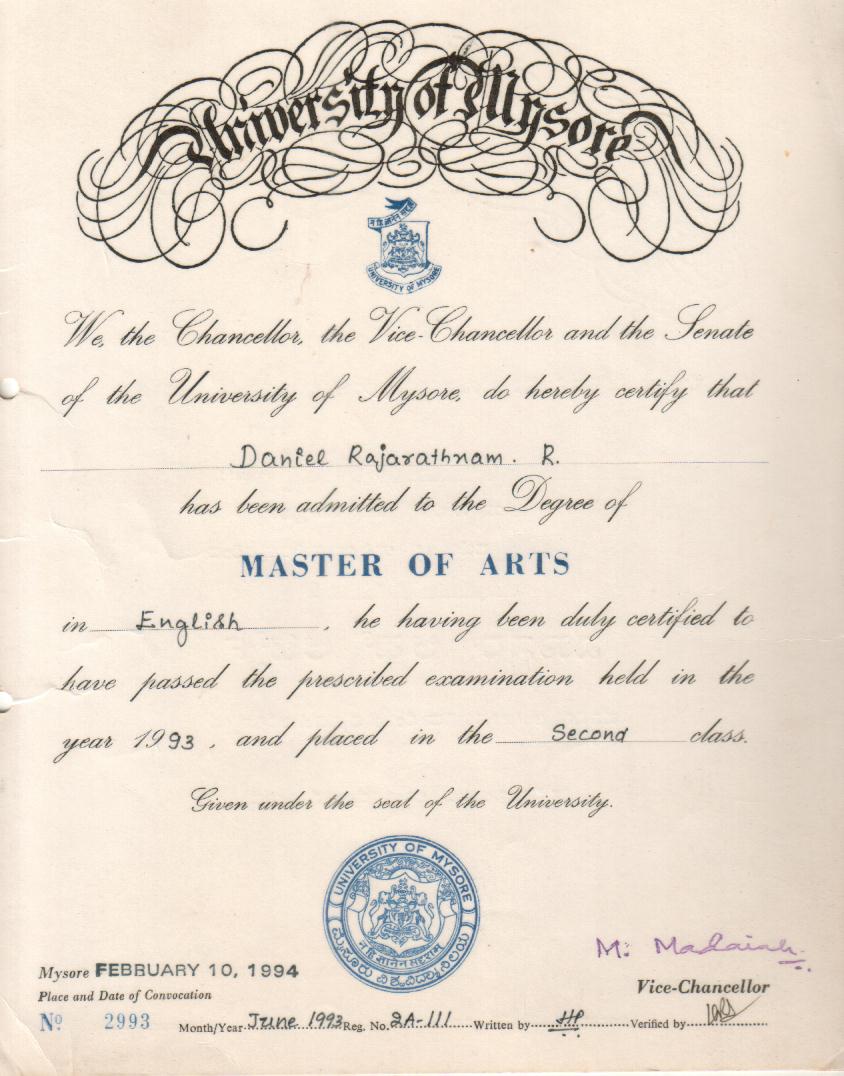 University of Mysore
न हि ज्ञानेन सदृशं
UNIVERSITY OF MYSORE
We, the Chancellor, the Vice-Chancellor and the Senate
of the University of Mysore, do hereby certify that
Daniel Rajarathnam. R.
has been admitted to the Degree of
MASTER OF ARTS
in English, he having been duly certified to
have passed the prescribed examination held in the
year 1993, and placed in the Second class.
Given under the seal of the University.
UNIVERSITY OF MYSORE
न हि ज्ञानेन सदृशम्
ಮೈಸೂರು ವಿಶ್ವವಿದ್ಯಾನಿಲಯ
M. Madaiah.
Mysore FEBRUARY 10, 1994
Vice-Chancellor
Place and Date of Convocation
Nº 2993 Month/Year June 1993 Reg. No. 2A-111 Written by HP Verified by